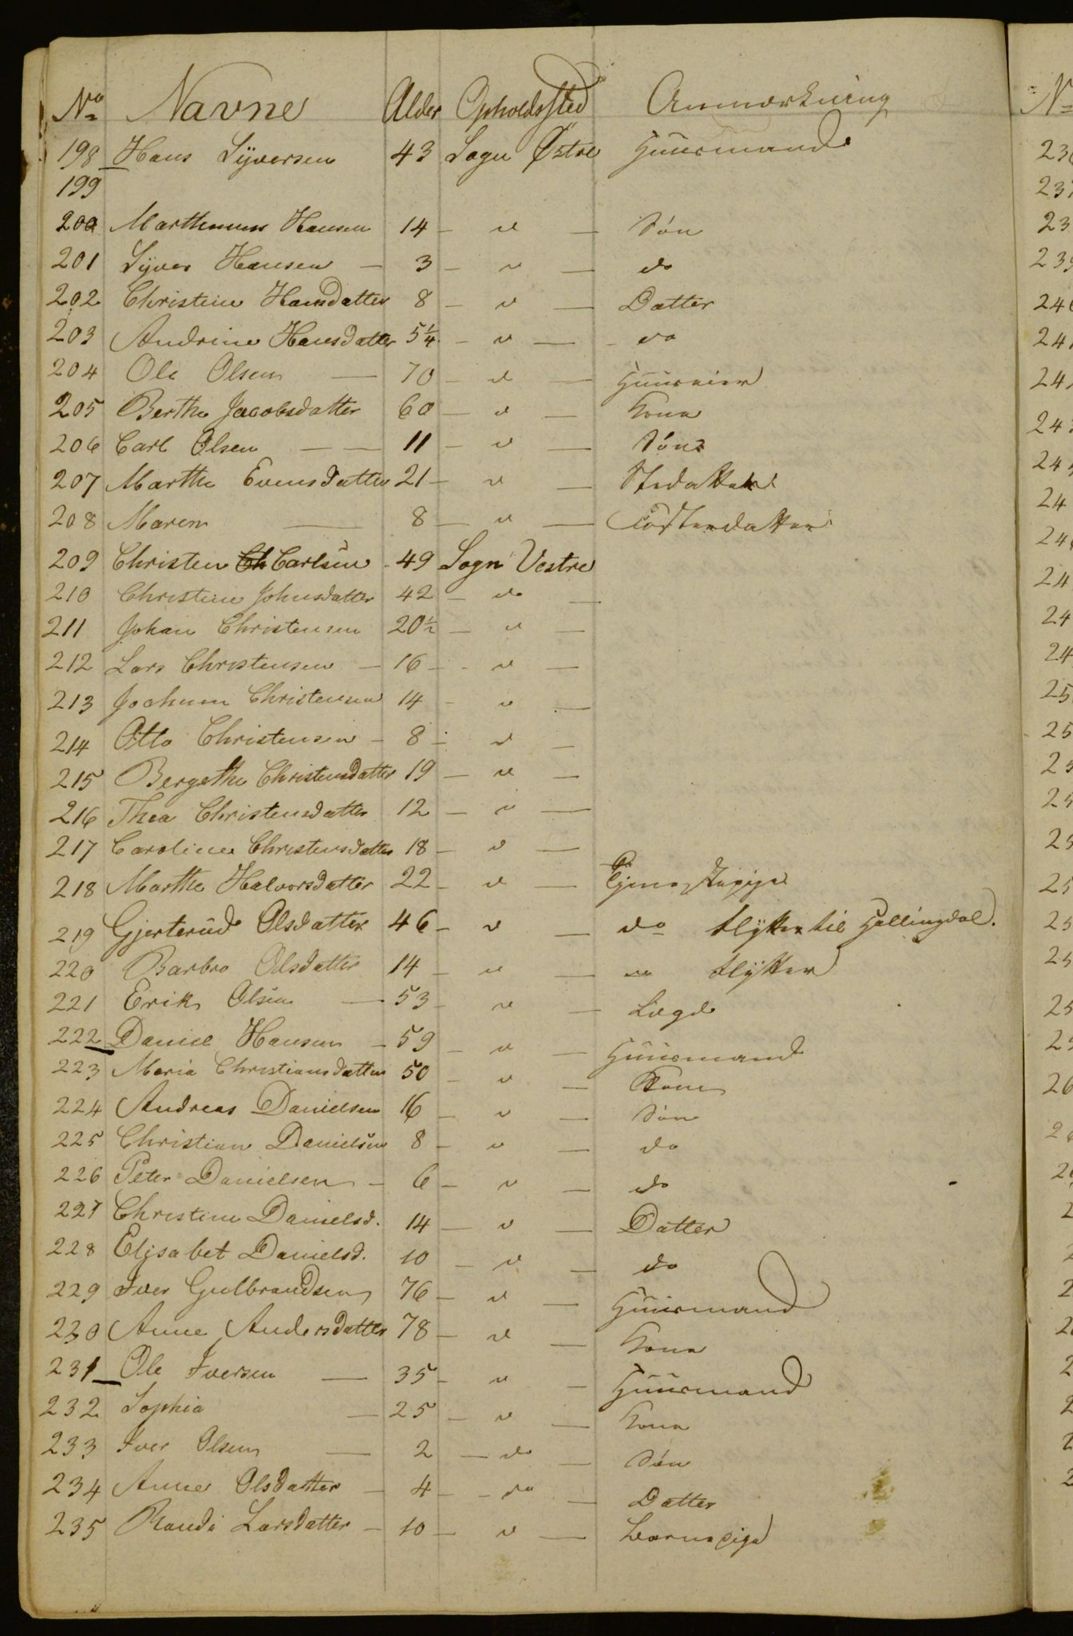 No Navne Alder Opholdssted Anmærkning
198 Hans Syversen 43 Sogn Østre Huusmand
199
200 Marthinus Hansen 14 — " — Søn
201 Syver Hansen — 3 — " — do
202 Christine Hansdatter 8 — " — Datter
203 Andrine Hansdatter 5¼ — " — do
204 Ole Olsen — 70 — " — Huuseier
205 Berthe Jacobsdatter 60 — " — Kone
206 Carl Olsen — — 11 — " — Søn
207 Marthe Evensdatter 21 — " — Stedatter
208 Maren — 8 — " — Fosterdatter
209 Christen Ch Carlsen 49 Sogn Vestre
210 Christine Johnsdatter 42 — do —
211 Johan Christensen 20½ — " —
212 Lars Christensen — 16 — " —
213 Jochum Christensen 14 — " —
214 Otto Christensen — 8 — " —
215 Bergethe Christensdatter 19 — " —
216 Thea Christensdatter 12 — " —
217 Caroline Christensdatter 18 — " —
218 Marthe Halvorsdatter 22 — " — Tjenestepige
219 Gjertrud Olsdatter 46 — " — do flytter til Hallingdal.
220 Barbro Olsdatter 14 — " — do flytter
221 Erik Olsen — 53 — " — Lægd
222 Daniel Hansen — 59 — " — Huusmand
223 Maria Christiansdatter 50 — " — Kone
224 Andreas Danielsen 16 — " — Søn
225 Christian Danielsen 8 — " — do
226 Peter Danielsen — 6 — " — do
227 Christine Danielsd. 14 — " — Datter
228 Elisabet Danielsd. 10 — " — do
229 Iver Gulbrandsen 76 — " — Huusmand
230 Anne Andersdatter 78 — " — Kone
231 Ole Iversen — 35 — " — Huusmand
232 Sophia — 25 — " — Kone
233 Iver Olsen — 2 — do — Søn
234 Anne Olsdatter — 4 — do — Datter
235 Randi Larsdatter — 10 — " — Barnepige